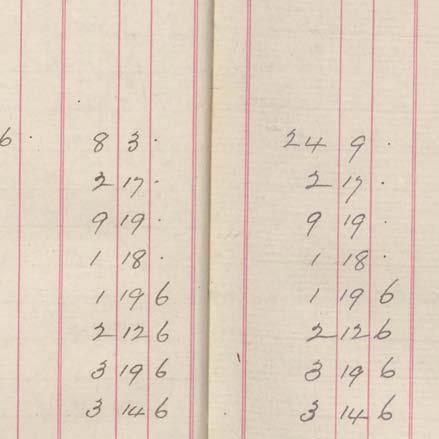 6 · 8 3 · 24 9 ·
2 17 - 2 17 ·
9 19 · 9 19 ·
1 18 · 1 18 ·
1 19 6 1 19 6
2 12 6 2 12 6
3 19 6 3 19 6
3 14 6 3 14 6